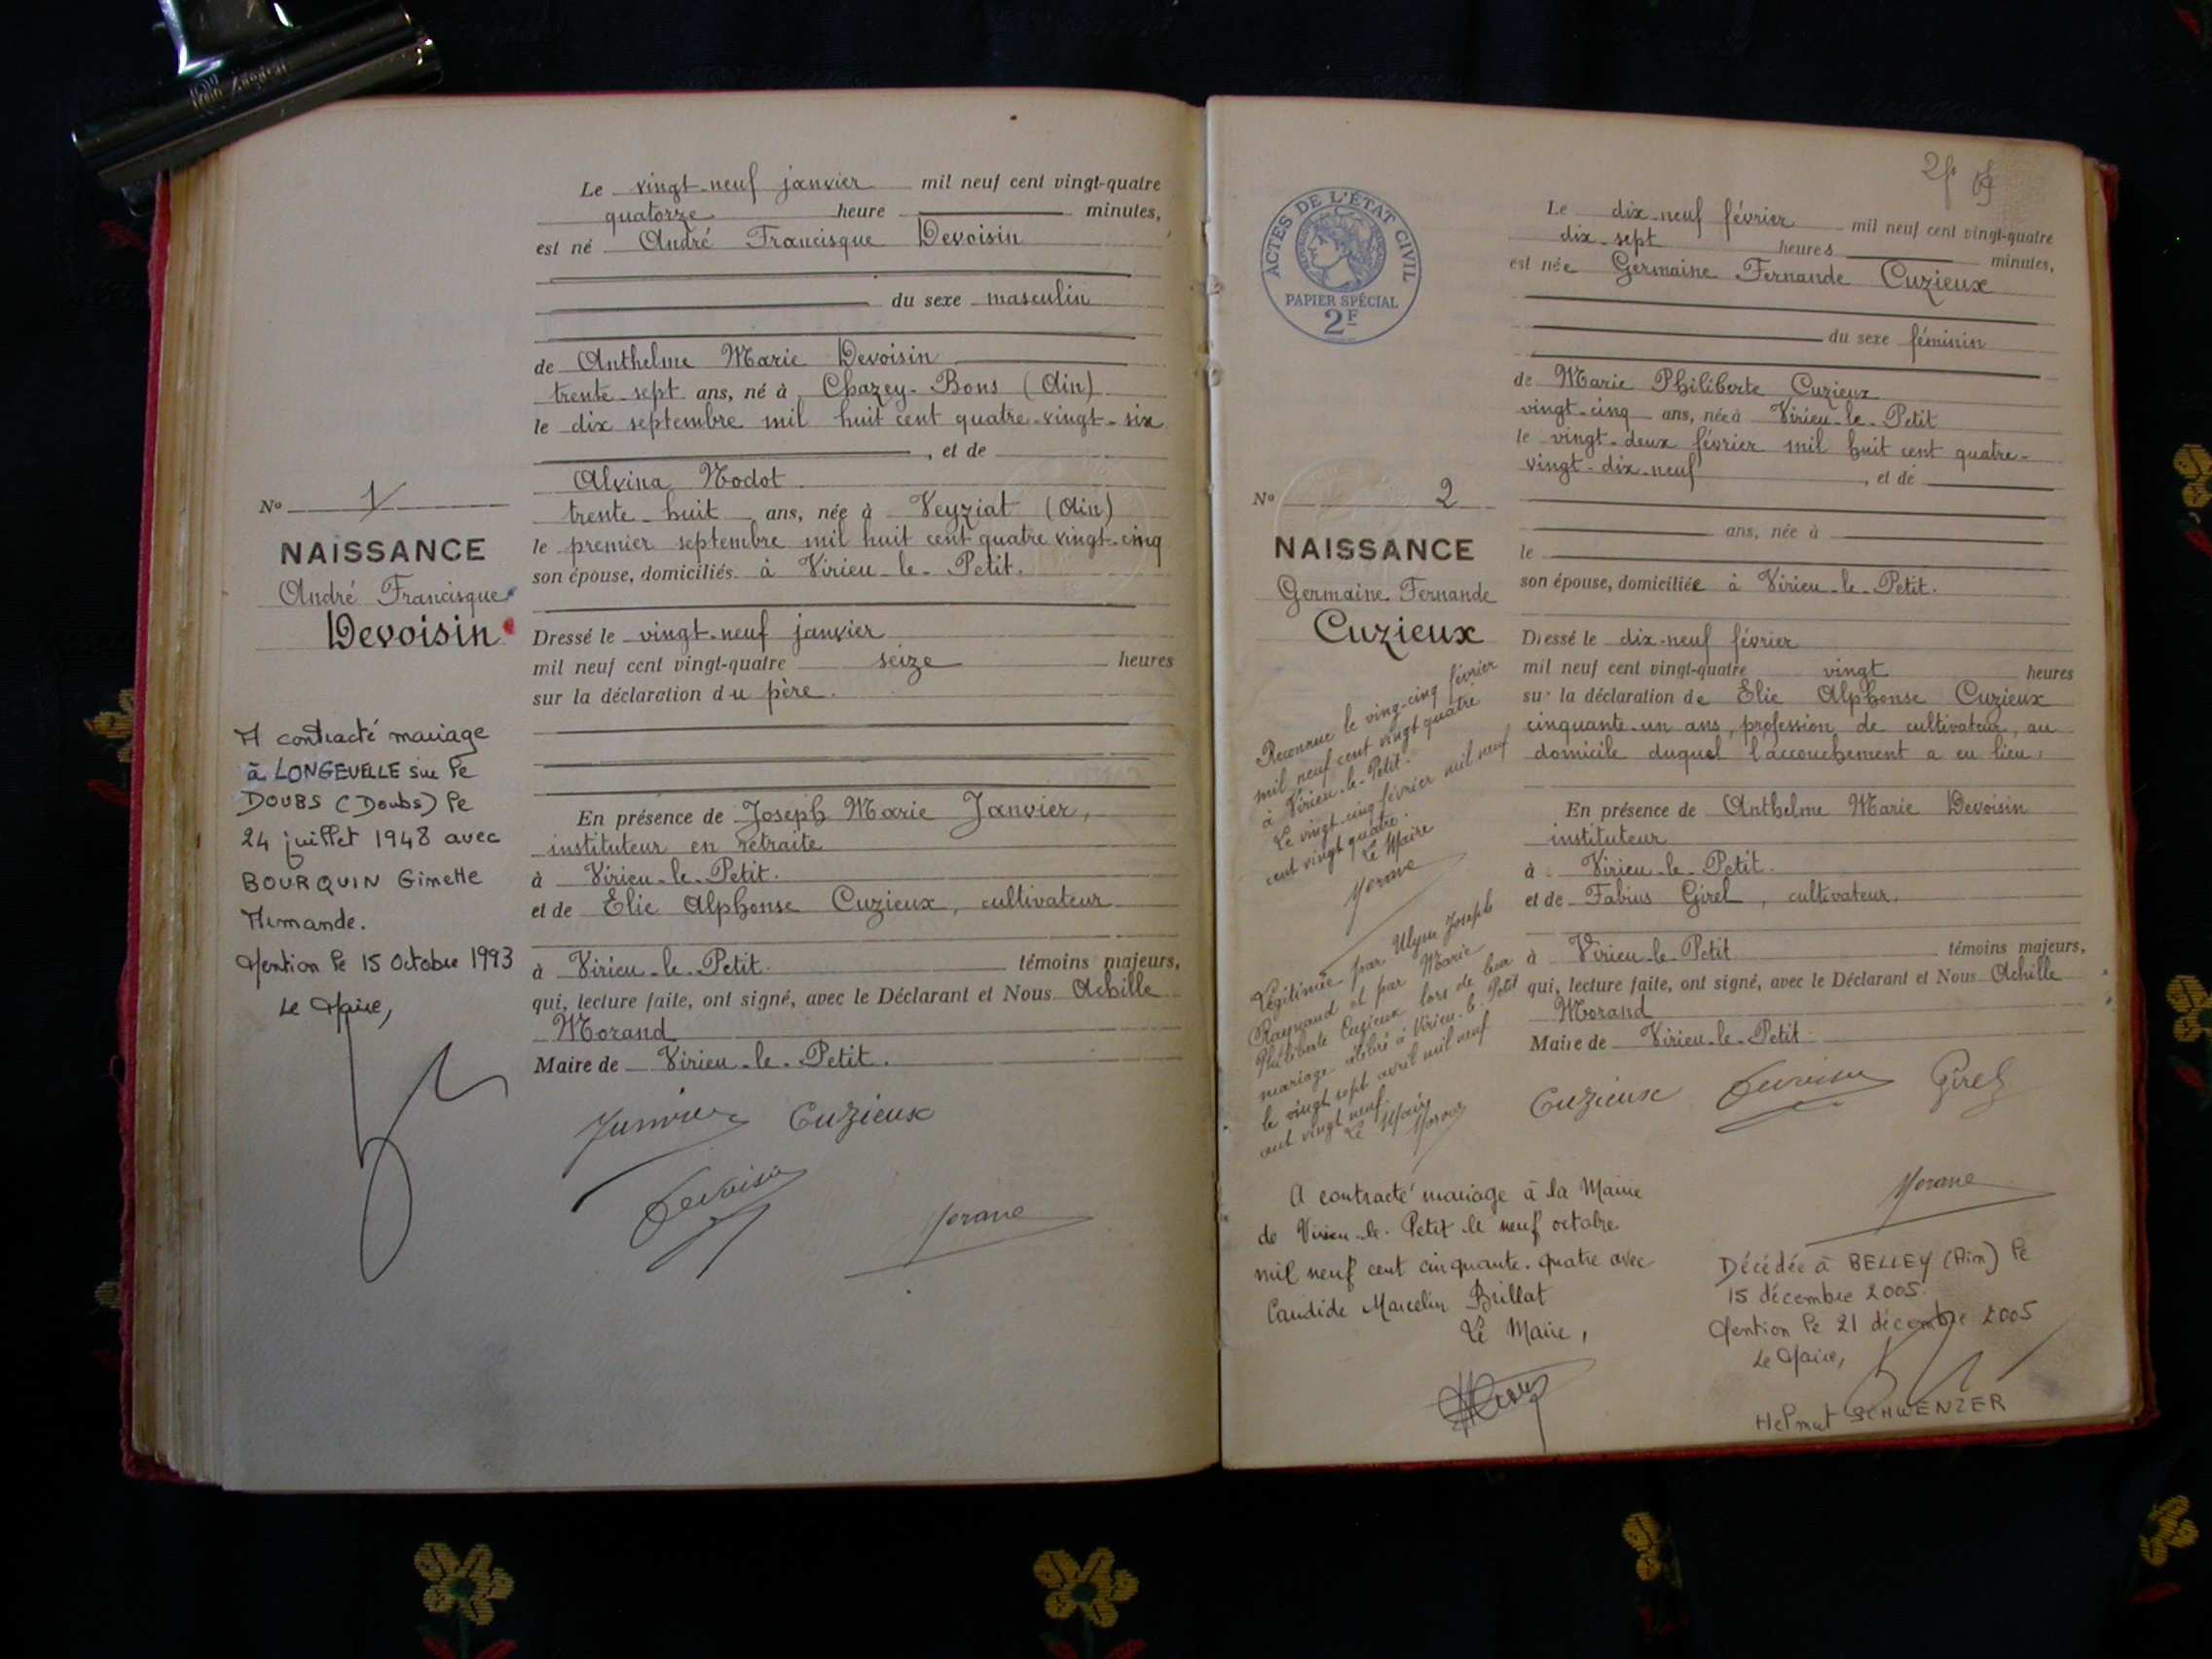 Le vingt-neuf janvier mil neuf cent vingt-quatre
quatorze heure minutes,
est né André Francisque Devoisin
du sexe masculin
de Anthelme Marie Devoisin
trente-sept ans, né à Chazey-Bons (Ain)
le dix septembre mil huit cent quatre-vingt-six
, et de
Alvina Nodot
trente-huit ans, née à Veyziat (Ain)
le premier septembre mil huit cent quatre vingt-cinq
son épouse, domiciliés à Virieu-le-Petit.
Dressé le vingt-neuf janvier
mil neuf cent vingt-quatre seize heures
sur la déclaration du père.
En présence de Joseph Marie Janvier,
instituteur en retraite
à Virieu-le-Petit.
et de Elie Alphonse Cuzieux, cultivateur
à Virieu-le-Petit. témoins majeurs,
qui, lecture faite, ont signé, avec le Déclarant et Nous Achille
Morand
Maire de Virieu-le-Petit.
Janvier Cuzieux
Devoisin
Morand
No 1
NAISSANCE
André Francisque
Devoisin
A contracté mariage
à LONGEVELLE sur le
DOUBS (Doubs) le
24 juillet 1948 avec
BOURQUIN Ginette
Armande.
Mention le 15 Octobre 1993
Le Maire,
2f
ACTES DE L'ÉTAT CIVIL
PAPIER SPÉCIAL
2F
Le dix-neuf février mil neuf cent vingt-quatre
dix-sept heures minutes,
est née Germaine Fernande Cuzieux
du sexe féminin
de Marie Philiberte Cuzieux
vingt-cinq ans, née à Virieu-le-Petit
le vingt-deux février mil huit cent quatre-
vingt-dix-neuf , et de
ans, née à
le
son épouse, domiciliée à Virieu-le-Petit.
Dressé le dix-neuf février
mil neuf cent vingt-quatre vingt heures
sur la déclaration de Elie Alphonse Cuzieux
cinquante-un ans, profession de cultivateur, au
domicile duquel l'accouchement a eu lieu.
En présence de Anthelme Marie Devoisin
instituteur
à Virieu-le-Petit.
et de Fabius Girel, cultivateur.
à Virieu-le-Petit témoins majeurs,
qui, lecture faite, ont signé, avec le Déclarant et Nous Achille
Morand
Maire de Virieu-le-Petit
Cuzieux Devoisin Girel
Morand
No 2
NAISSANCE
Germaine Fernande
Cuzieux
Reconnue le ving-cinq février
mil neuf cent vingt quatre
à Virieu-le-Petit.
Le vingt-cinq février mil neuf
cent vingt quatre.
Le Maire
Morand
Légitimée par Joseph
Raynaud et par Marie
Philiberte Cuzieux lors de leur
mariage célébré à Virieu-le-Petit
le vingt sept avril mil neuf
cent vingt neuf.
Le Maire
Morand
A contracté mariage à la Mairie
de Virieu-le-Petit le neuf octobre
mil neuf cent cinquante-quatre avec
Candide Marcelin Brillat
Le Maire,
Décédée à BELLEY (Ain) le
15 décembre 2005.
Mention le 21 décembre 2005
Le Maire,
Helmut SCHWENZER